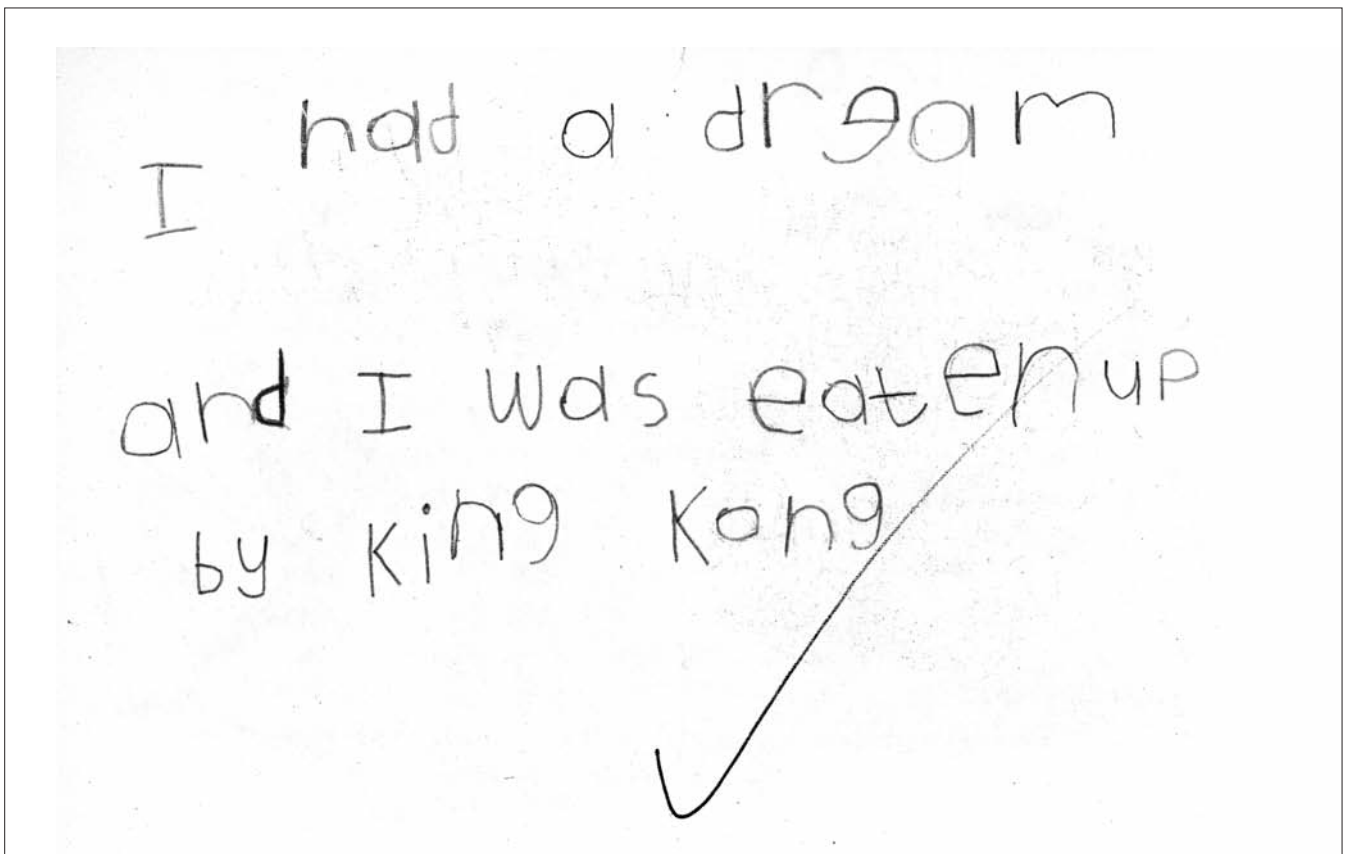 I had a dream
and I was eaten up
by King Kong